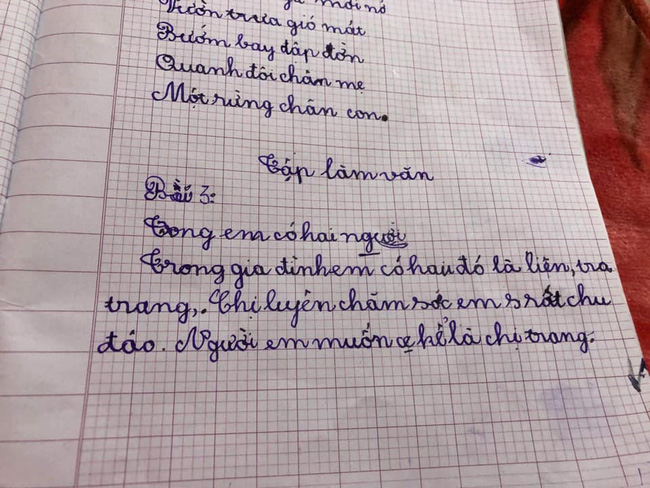 mới nở
Vườn trưa gió mát
Bướm bay dập dờn
Quanh đôi chân mẹ
Một rừng chân con.
Tập làm văn
Bài 3:
Trong em có hai người
Trong gia đình em có hai đó là liên, tra
trang,. Chị luyên chăm sóc em s rất chu
đáo. Người em muốn kể là chị trang.